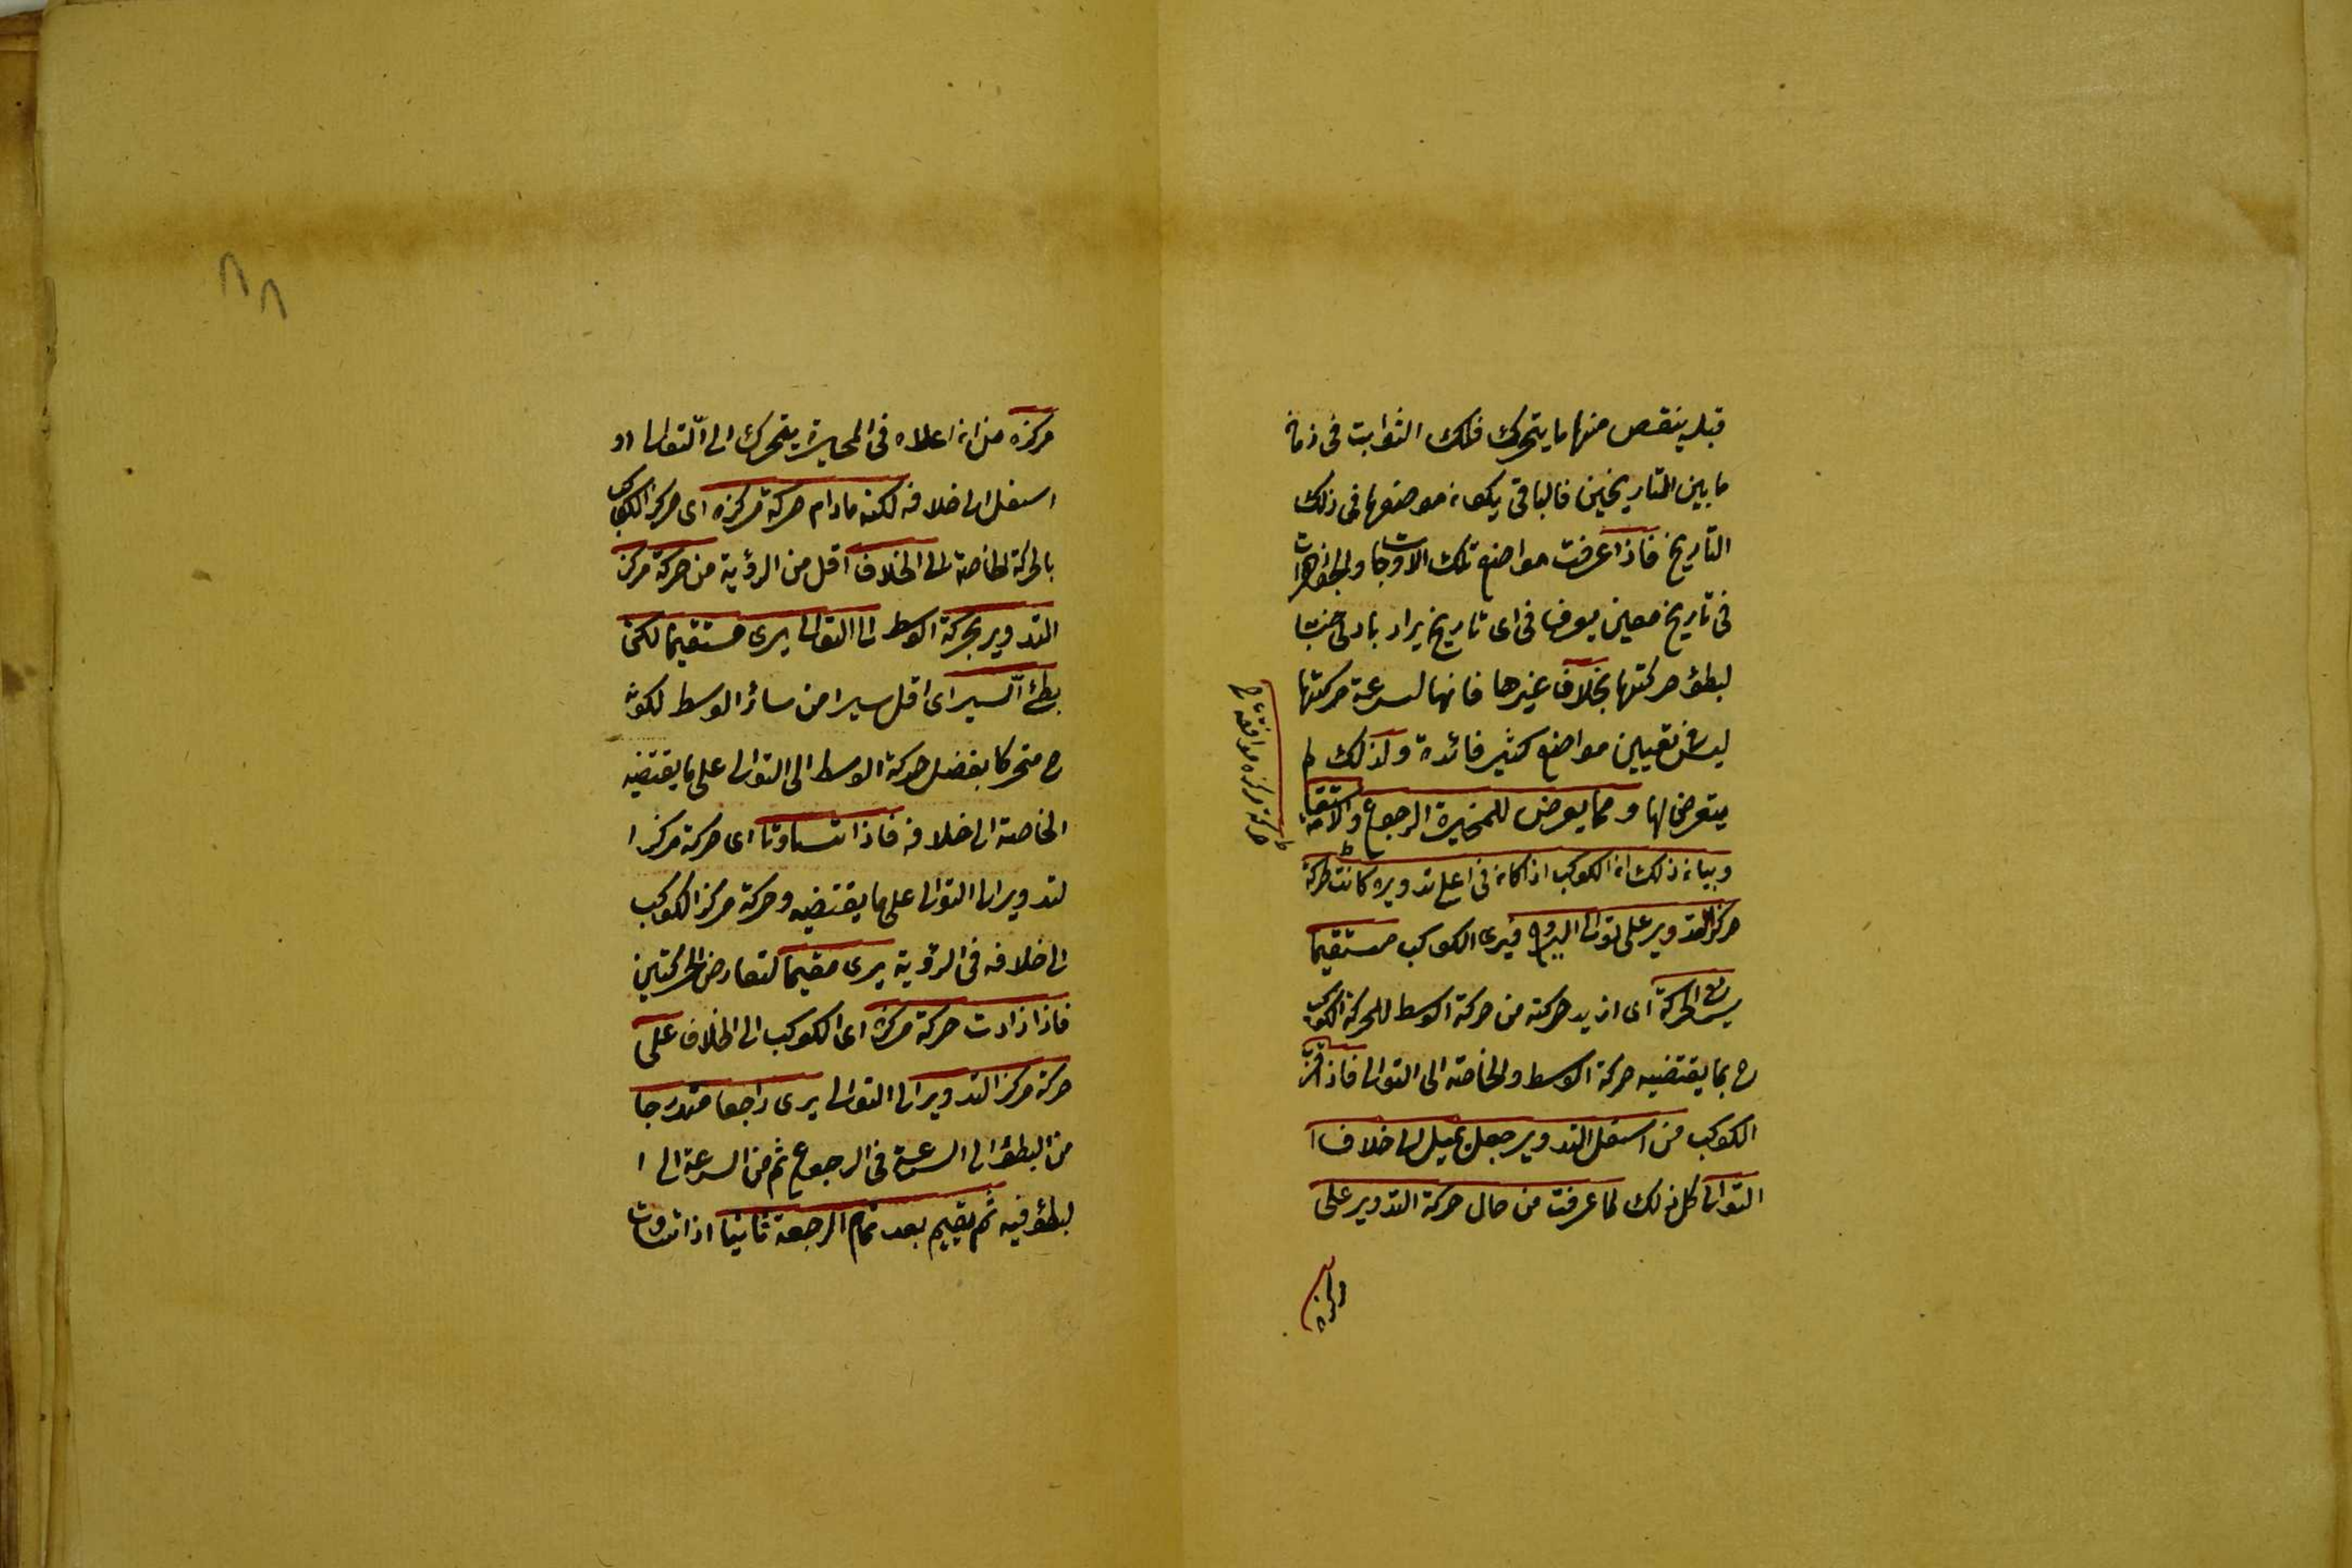 قبله ينقص منها ما يتحرك فلك الثوابت فى زمان
ما بين التاريخين فالباقى يكون موضعها فى ذلك
التاريخ فاذا عرفت مواضع تلك الاوجات والجوزهرات
فى تاريخ معين يعرف فى اى تاريخ يراد بادنى
لبطؤ حركتها بخلاف غيرها فانها لسرعة حركتها
ليس فى تعيين مواضع كثير فائدة ولذلك لم
يتعرض لها ومما يعرض للمتحيرة الرجوع والاستقامة
وبيان ذلك ان الكوكب اذا كان فى اعلى تدويره كانت حركة
مركزه موافقة لحركة
مركز التدوير على توالى البروج فيرى الكوكب مستقيما
سريع الحركة اى ازيد حركته من حركة الوسط للحركة الكوكب
ح بما يقتضيه حركة الوسط والخاصة الى التوالى فاذا قرب
الكوكب من اسفل التدوير جعل يميل الى خلاف ا
التوالى كل ذلك لما عرفت من حال حركة التدوير على
مركزه
مركزه من ان اعلاه فى المحيرة يتحرك الى التوالى او
اسفل الى خلافه لكنه مادام حركة مركزه اى مركز الكوكب
بالحركة الخاصة الى الخلاف اقل من الرؤية من حركة مركز
التدوير بحركة الوسط الى التوالى يرى مستقيما لكن
بطئ السير اى اقل سيرا من سائر الوسط لكونه
ح متحركا بفضل حركة الوسط الى التوالى على ما يقتضيه
الخاصة الى خلافه فاذا تساوتا اى حركة مركز ا
لتدوير الى التوالى على ما يقتضيه وحركة مركز الكوكب
الى خلافه فى الرؤية يرى مقيما لتعارض الحركتين
فاذا زادت حركة مركزه اى الكوكب الى الخلاف على
حركة مركز التدوير الى التوالى يرى راجعا متدرجا
من البطؤ الى السرعة فى الرجوع ثم من السرعة الى ا
لبطؤ فيه ثم يقيم بعد تمام الرجعة ثانيا اذا تساوت
٨٨